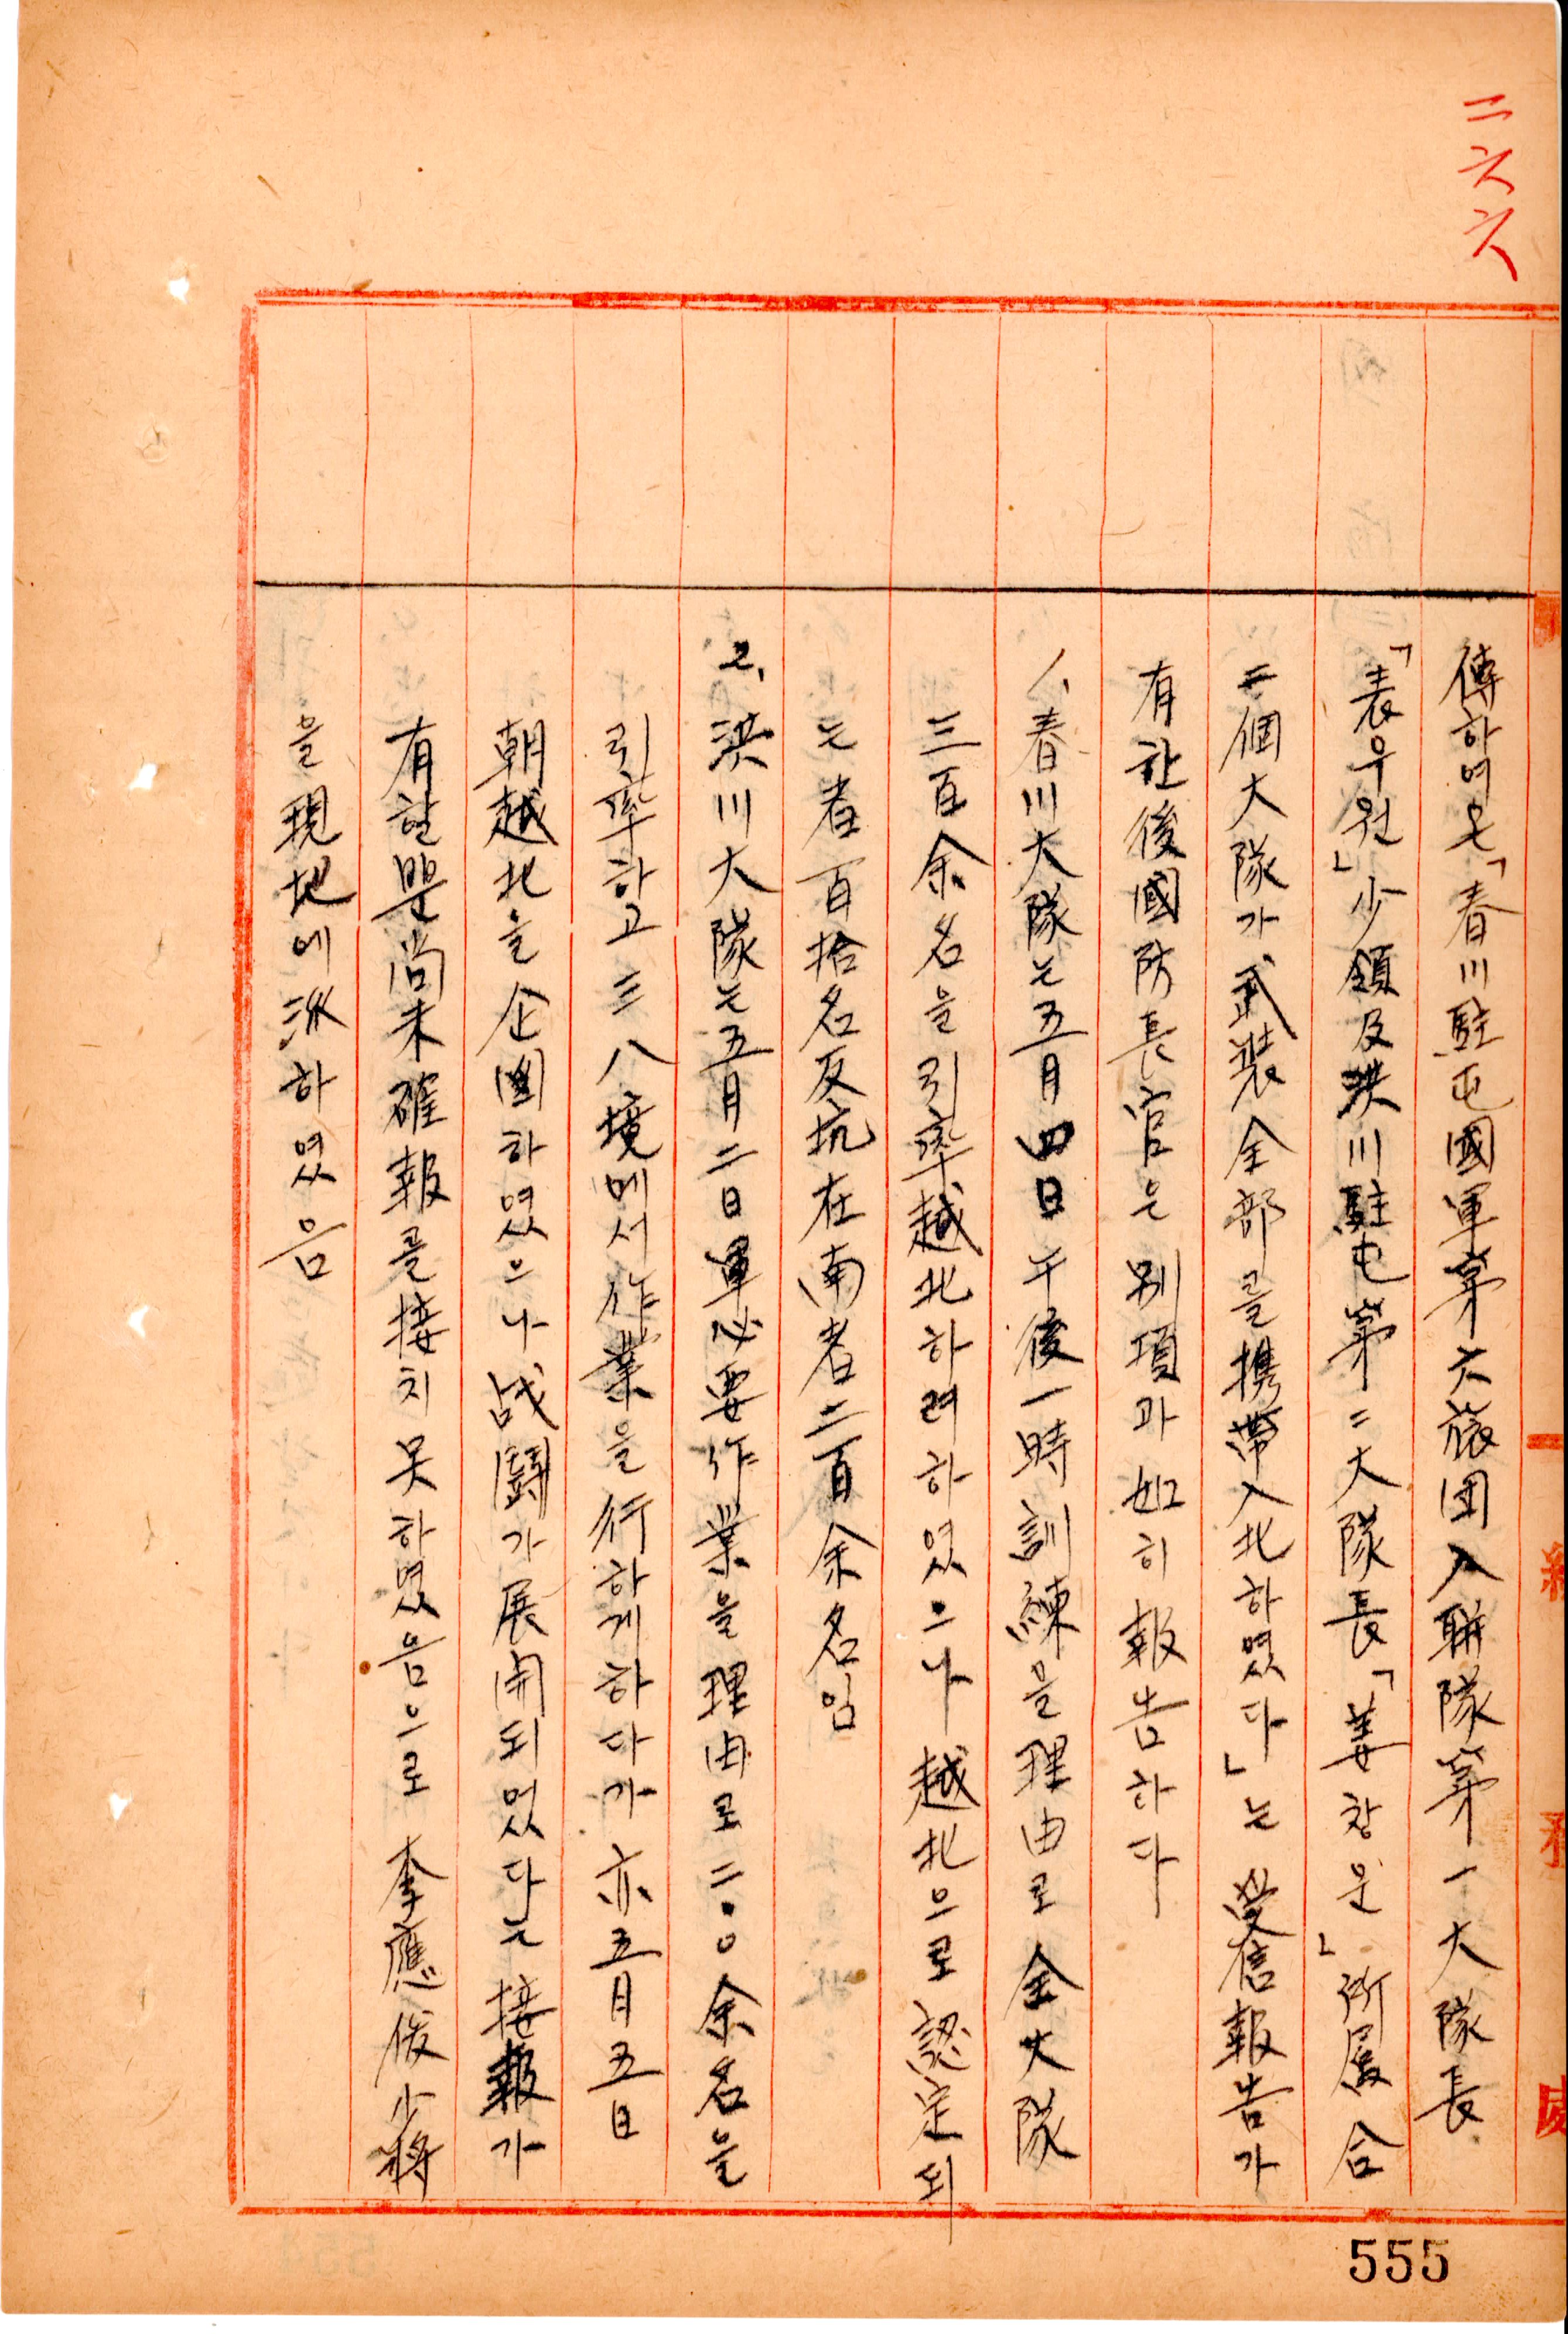 二六六
傳하여온「春川駐屯國軍第六旅団入聯隊第一大隊長
「表우원」少領及洪川駐屯第二大隊長「姜창문」所属合
二個大隊가武装全部를携帶入北하였다」는受信報告가
有한後國防長官은別項과如히報告하다
1、春川大隊는五月四日午後一時訓練을理由로全大隊
三百余名을引率越北하려하였으나越北으로認定되
는者百拾名反抗在南者二百余名임
2、洪川大隊는五月二日軍必要作業을理由로二〇〇余名을
引率하고三八境에서作業을行하게하다가亦五月五日
朝越北을企圖하였으나战鬪가展開되였다는接報가
有할뿐尚未確報를接치못하였음으로李應俊少将
을現地에派하였음
555